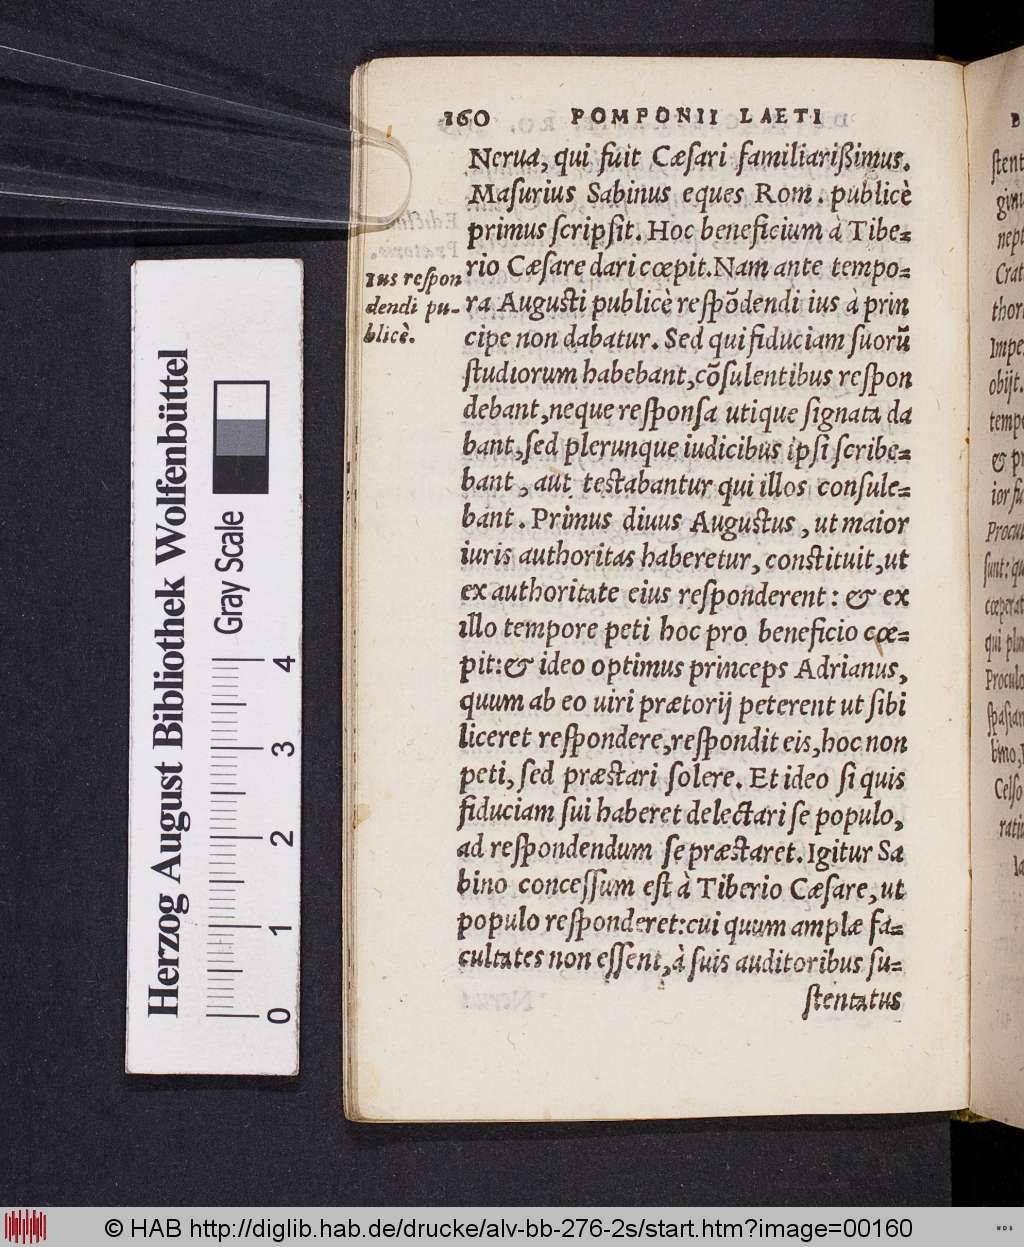 160 POMPONII LAETI
Nerua, qui fuit Cæſari familiarißimus.
Maſurius Sabinus eques Rom. publicè
primus ſcripſit. Hoc beneficium à Tibe=
rio Cæſare dari cœpit. Nam ante tempo=
ra Auguſti publicè reſpõdendi ius à prin
cipe non dabatur. Sed qui fiduciam ſuorũ
ſtudiorum habebant, cõſulentibus reſpon
debant, neque reſponſa utique ſignata da
bant, ſed plerunque iudicibus ipſi ſcribe=
bant, aut teſtabantur qui illos conſule=
bant. Primus diuus Auguſtus, ut maior
iuris authoritas haberetur, conſtituit, ut
ex authoritate eius reſponderent: & ex
illo tempore peti hoc pro beneficio cœ=
pit: & ideo optimus princeps Adrianus,
quum ab eo uiri prætorij peterent ut ſibi
liceret reſpondere, reſpondit eis, hoc non
peti, ſed præſtari ſolere. Et ideo ſi quis
fiduciam ſui haberet delectari ſe populo,
ad reſpondendum ſe præſtaret. Igitur Sa
bino conceſſum eſt à Tiberio Cæſare, ut
populo reſponderet: cui quum amplæ fa=
cultates non eſſent, à ſuis auditoribus ſu=
ſtentatus
Ius reſpon
dendi pu-
blicè.
Herzog August Bibliothek Wolfenbüttel
Gray Scale
0 1 2 3 4
ſtent
ginu
nept
Crat
thori
Impe
obijt.
tempo
& pr
ior fu
Procul
ſunt: qu
cœperat
qui plu
Proculo
ſpaſian
bino,
Celſo
ratiu
© HAB http://diglib.hab.de/drucke/alv-bb-276-2s/start.htm?image=00160